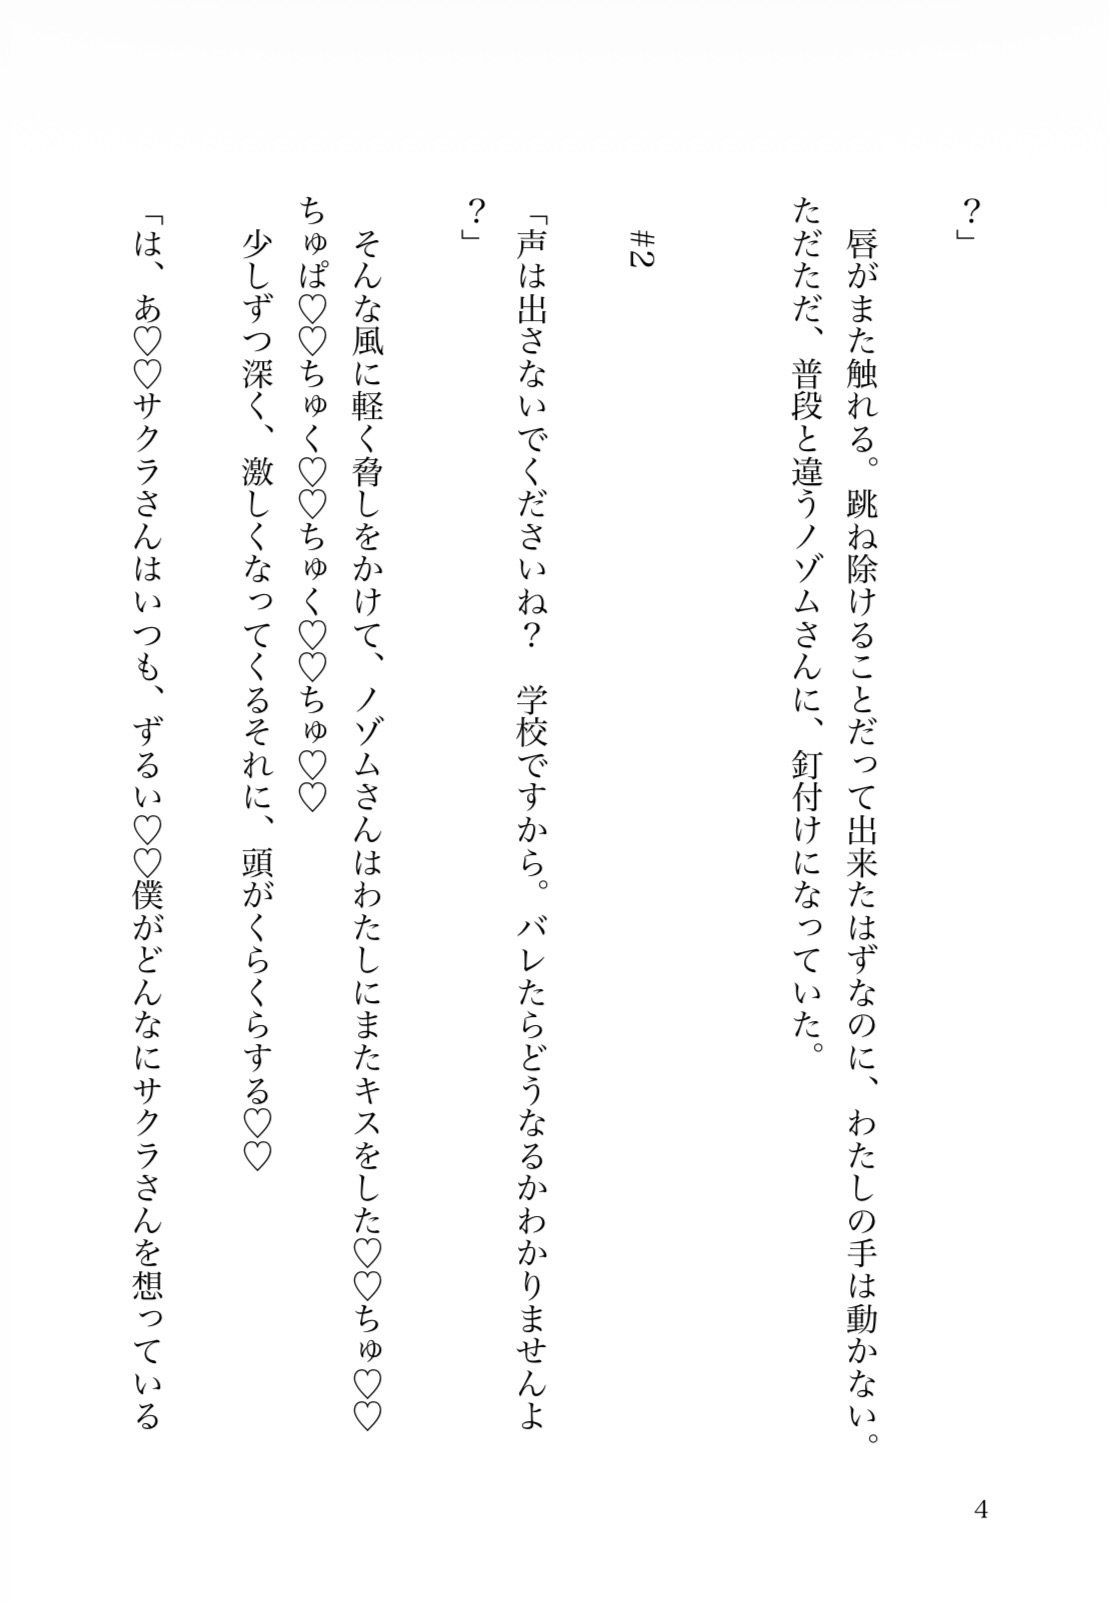 ？」
　唇がまた触れる。跳ね除けることだって出来たはずなのに、わたしの手は動かない。
ただただ、普段と違うノゾムさんに、釘付けになっていた。
　#2
「声は出さないでくださいね？　学校ですから。バレたらどうなるかわかりませんよ
？」
　そんな風に軽く脅しをかけて、ノゾムさんはわたしにまたキスをした♡♡ちゅ♡♡
ちゅぱ♡♡ちゅく♡♡ちゅく♡♡ちゅ♡♡
　少しずつ深く、激しくなってくるそれに、頭がくらくらする♡♡
「は、あ♡♡サクラさんはいつも、ずるい♡♡僕がどんなにサクラさんを想っている
4